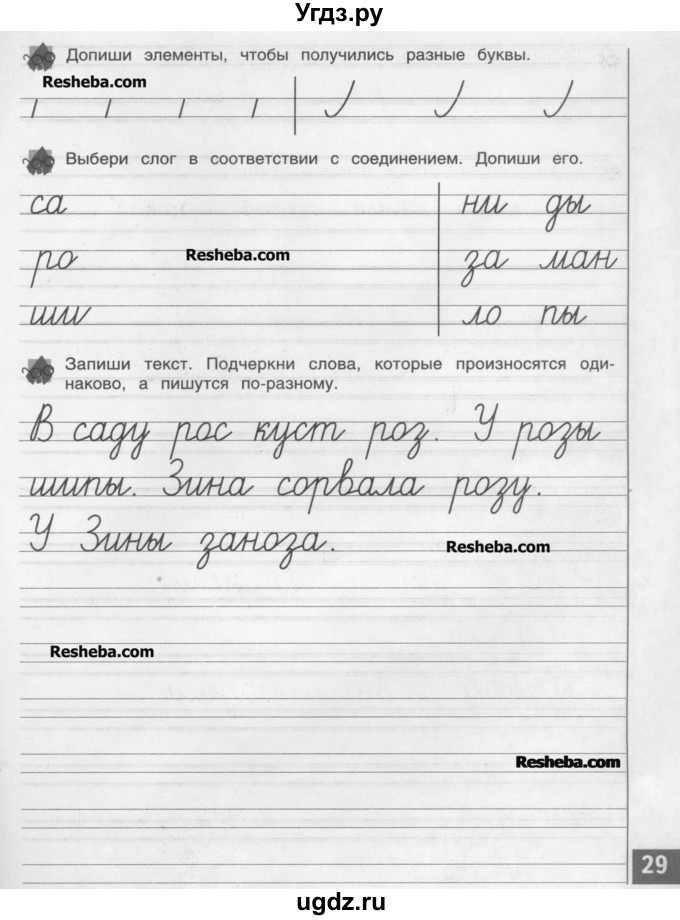 Угдз.ру
Допиши элементы, чтобы получились разные буквы.
Resheba.com
Выбери слог в соответствии с соединением. Допиши его.
са ни ды
Resheba.com
ро за ман
ши ло пы
Запиши текст. Подчеркни слова, которые произносятся оди-
наково, а пишутся по-разному.
В саду рос куст роз. У розы
шипы. Зина сорвала розу.
У Зины заноза.
Resheba.com
Resheba.com
Resheba.com
29
угдз.ру